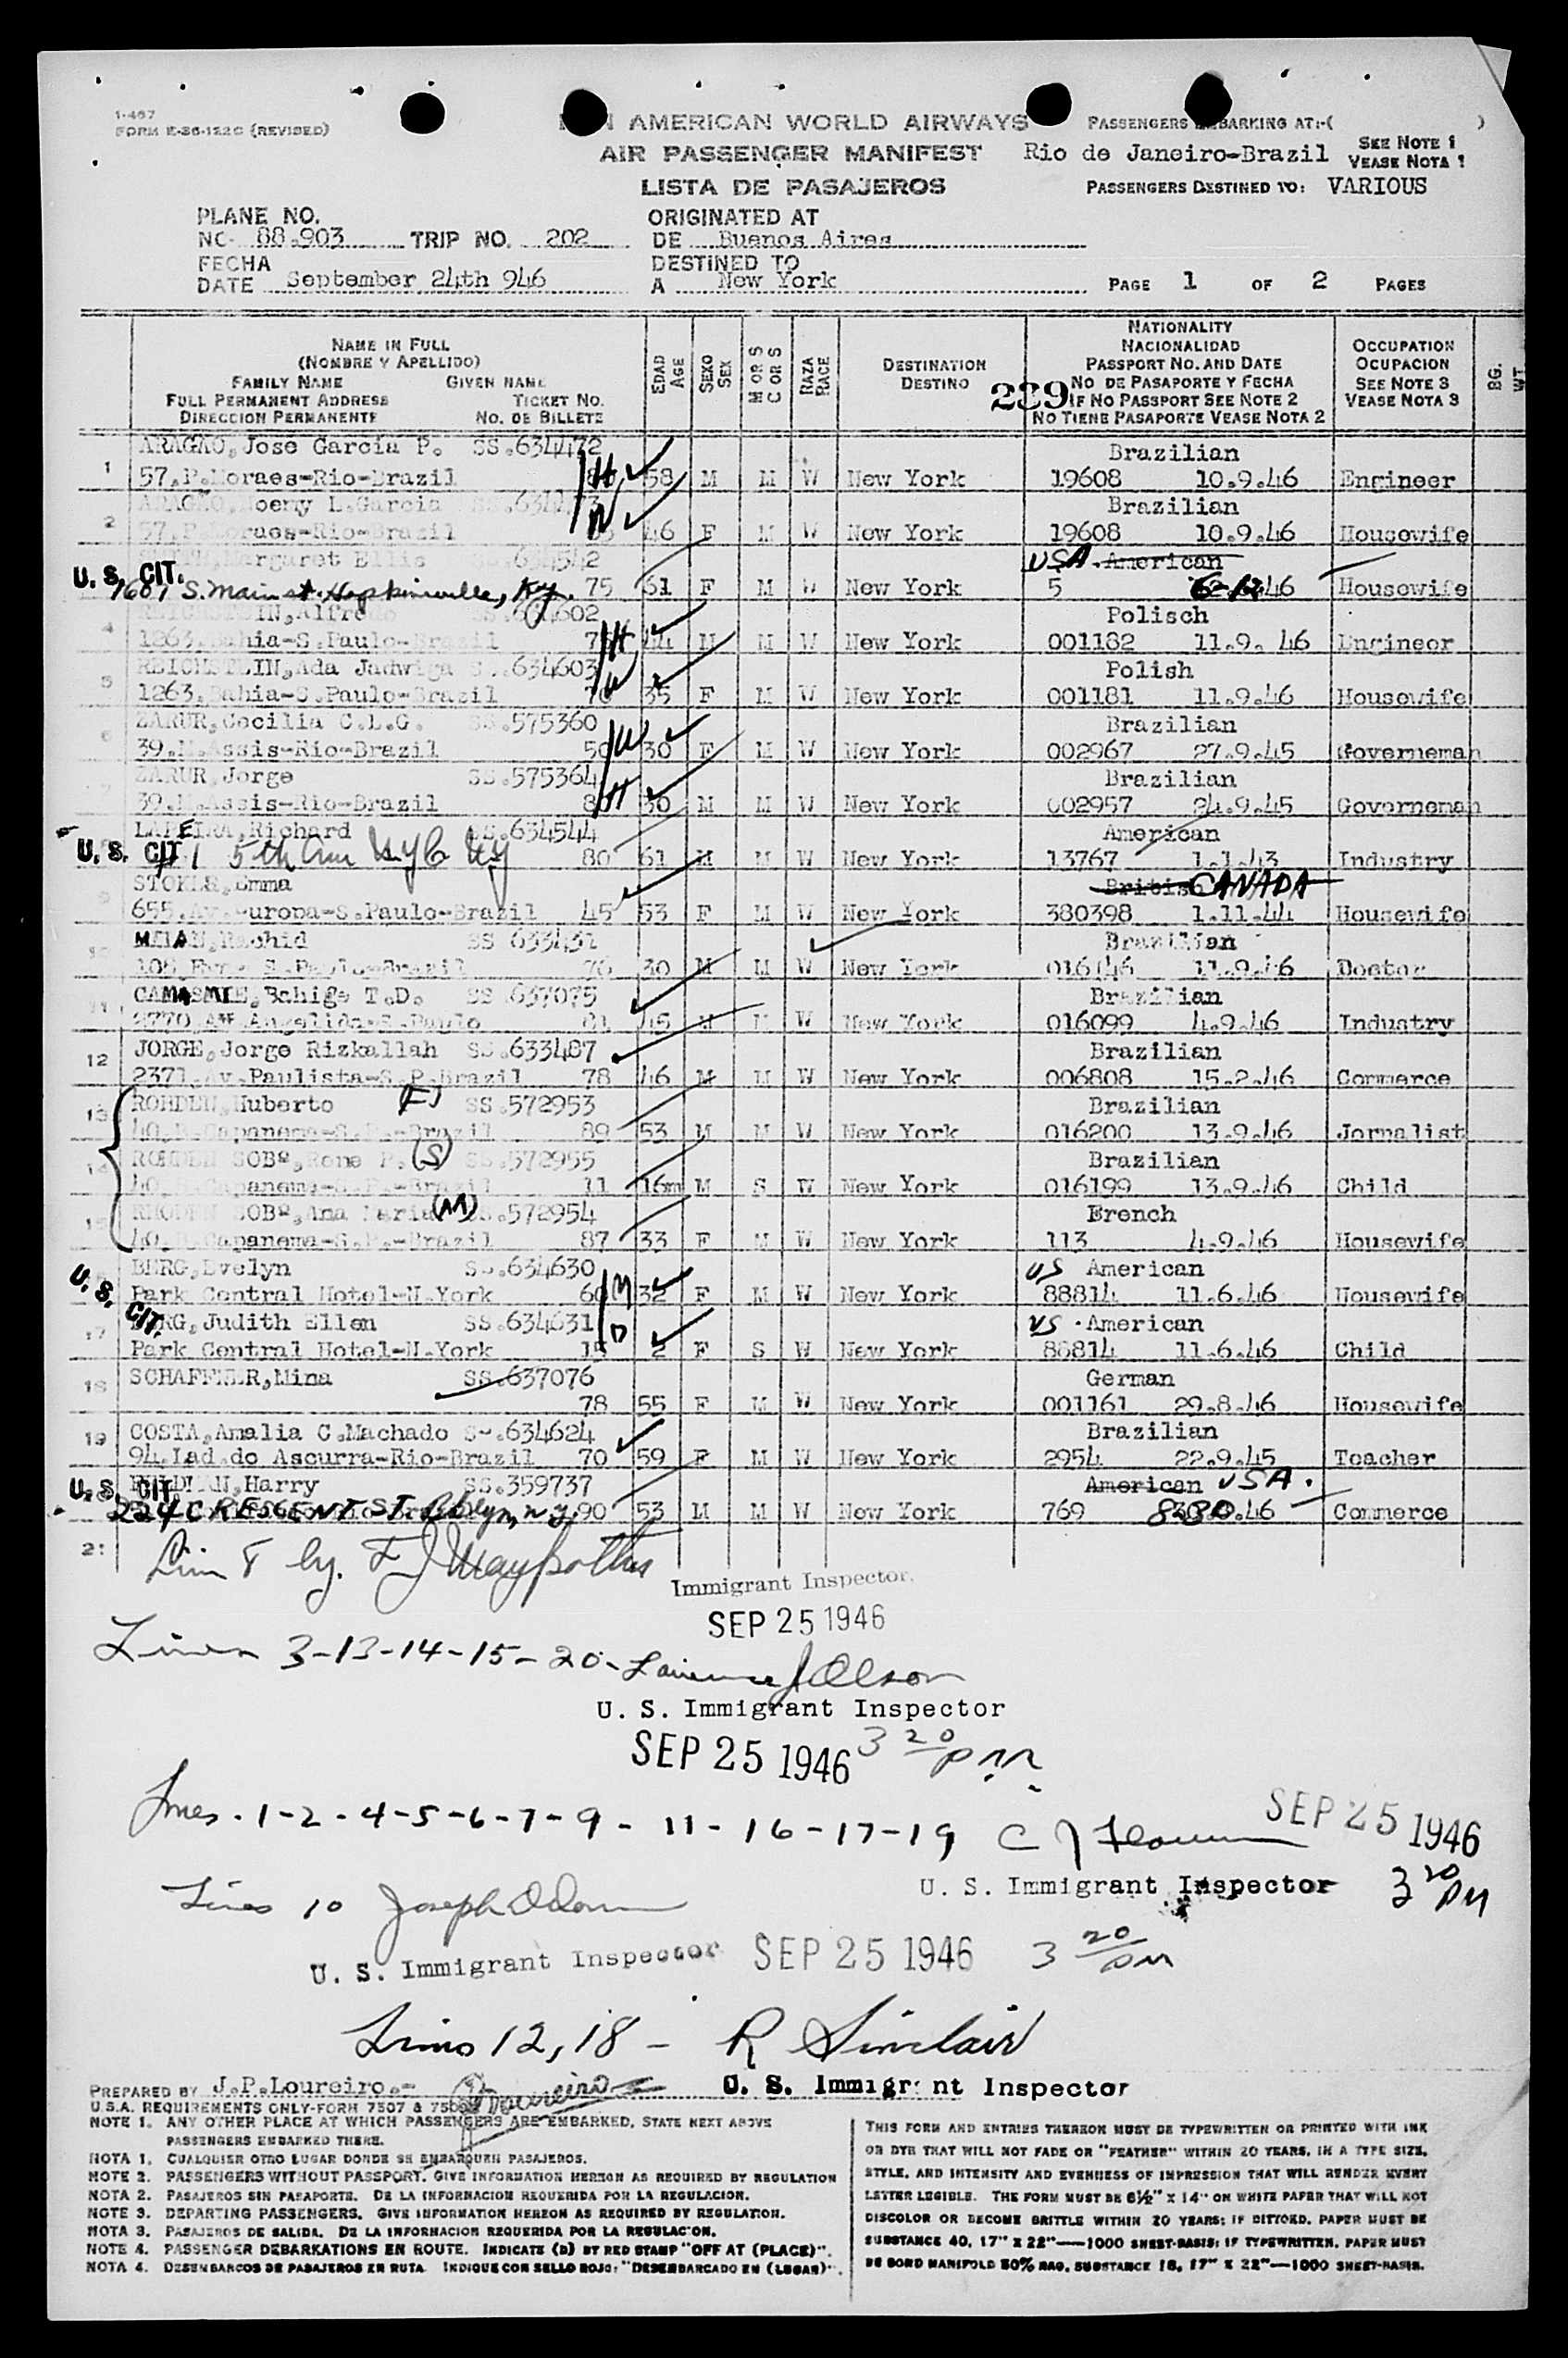 1-467
FORM E-86-122C (REVISED)
AMERICAN WORLD AIRWAYS
AIR PASSENGER MANIFEST
LISTA DE PASAJEROS
PASSENGERS EMBARKING AT:-( )
Rio de Janeiro-Brazil
SEE NOTE 1
VEASE NOTA 1
PASSENGERS DESTINED TO: VARIOUS
PLANE NO.
NC- 88.903 TRIP NO. 202
ORIGINATED AT
DE Buenos Aires
FECHA
DATE September 24th 946
DESTINED TO
A New York
PAGE 1 OF 2 PAGES
NAME IN FULL
(NOMBRE Y APELLIDO)
FAMILY NAME GIVEN NAME
FULL PERMANENT ADDRESS TICKET NO.
DIRECCION PERMANENTE NO. DE BILLETE
EDAD AGE
SEXO SEX
M OR S
C OR S
RAZA RACE
DESTINATION
DESTINO
239
NATIONALITY
NACIONALIDAD
PASSPORT NO. AND DATE
NO DE PASAPORTE Y FECHA
IF NO PASSPORT SEE NOTE 2
NO TIENE PASAPORTE VEASE NOTA 2
OCCUPATION
OCUPACION
SEE NOTE 3
VEASE NOTA 3
BG. WT.
ARAGAO, Jose Garcia P. SS.634472 Brazilian
1 57.P.Moraes-Rio-Brazil H 58 M M W New York 19608 10.9.46 Engineer
ARAGAO, Noemy L.Garcia Brazilian
2 57.P.Moraes-Rio-Brazil W 46 F M W New York 19608 10.9.46 Housewife
Margaret Ellis SS.634542 USA American
U. S. CIT. 1601 S. Main st. Hopkinsville, Ky. 75 61 F M W New York 5 46 Housewife
REICHSTEIN, Alfredo Polisch
4 1263.Bahia-S.Paulo-Brazil H 44 M M W New York 001182 11.9.46 Engineer
REICHSTEIN, Ada Jadwiga SS.634603 Polish
5 1263.Bahia-S.Paulo-Brazil W 35 F M W New York 001181 11.9.46 Housewife
ZARUR, Cecilia C.L.G. SS.575360 Brazilian
6 39.M.Assis-Rio-Brazil W 30 F M W New York 002967 27.9.45 Governeman
ZARUR, Jorge SS.575364 Brazilian
7 39.M.Assis-Rio-Brazil H 30 M M W New York 002957 24.9.45 Governeman
LAPEIRA, Richard SS.634544 American
U. S. CIT #1 5th Ave NYC NY 80 61 M M W New York 13767 1.1.43 Industry
STOKER, Emma British CANADA
9 655.Av.Europa-S.Paulo-Brazil 45 53 F M W New York 380398 1.11.44 Housewife
Rachid SS 633431 Brazilian
10 S.Paulo-Brazil 76 30 M M W New York 11.9.46 Doctor
CAMASMIE, Bahige T.D. SS.637075 Brazilian
11 2770.Av.Angelida-S.Paulo 81 45 M M W New York 016099 4.9.46 Industry
JORGE, Jorge Rizkallah SS.633487 Brazilian
12 2371.Av.Paulista-S.P.Brazil 78 46 M M W New York 006808 15.2.46 Commerce
ROHDEN, Huberto (F) SS.572953 Brazilian
13 40.R.Capanema-S.P.-Brazil 89 53 M M W New York 016200 13.9.46 Jornalist
ROHDEN SOBº, Rene P. (S) SS.572955 Brazilian
14 40.R.Capanema-S.P.-Brazil 11 16m M S W New York 016199 13.9.46 Child
RHODEN SOBº, Ana Maria (M) SS.572954 French
15 40.R.Capanema-S.P.-Brazil 87 33 F M W New York 113 4.9.46 Housewife
BERG, Evelyn SS.634630 US American
U. S. CIT. Park Central Hotel-N.York 60 M 32 F M W New York 88814 11.6.46 Housewife
BERG, Judith Ellen SS.634631 US American
17 Park Central Hotel-N.York 15 D 2 F S W New York 88814 11.6.46 Child
SCHAFFNER, Mina SS.637076 German
18 78 55 F M W New York 001161 29.8.46 Housewife
COSTA, Amalia C.Machado SS.634624 Brazilian
19 94.Lad.do Ascurra-Rio-Brazil 70 59 F M W New York 2954 22.9.45 Teacher
FELDMAN, Harry SS.359737 American USA.
U. S. CIT. 224 CRESCENT ST. Bklyn, N.Y. 90 53 M M W New York 769 46 Commerce
21
Line 8 by.
Immigrant Inspector.
SEP 25 1946
Lines 3-13-14-15-20- Lawrence J Olson
U. S. Immigrant Inspector
SEP 25 1946 3 20 PM
Lines. 1-2-4-5-6-7-9-11-16-17-19 C J
SEP 25 1946
U. S. Immigrant Inspector 3 20 PM
Lines 10 Joseph
U. S. Immigrant Inspector SEP 25 1946 3 20 PM
Lines 12, 18 - R Sinclair
U. S. Immigrant Inspector
PREPARED BY J.P.Loureiro.- Loureiro
U.S.A. REQUIREMENTS ONLY-FORM 7507 &
NOTE 1. ANY OTHER PLACE AT WHICH PASSENGERS ARE EMBARKED, STATE NEXT ABOVE
PASSENGERS EMBARKED THERE.
NOTA 1. CUALQUIER OTRO LUGAR DONDE SE EMBARQUEN PASAJEROS.
NOTE 2. PASSENGERS WITHOUT PASSPORT. GIVE INFORMATION HEREON AS REQUIRED BY REGULATION
NOTA 2. PASAJEROS SIN PASAPORTE. DE LA INFORMACION REQUERIDA POR LA REGULACION.
NOTE 3. DEPARTING PASSENGERS. GIVE INFORMATION HEREON AS REQUIRED BY REGULATION.
NOTA 3. PASAJEROS DE SALIDA. DE LA INFORMACION REQUERIDA POR LA REGULACION.
NOTE 4. PASSENGER DEBARKATIONS EN ROUTE. INDICATE (D) BY RED STAMP "OFF AT (PLACE)".
NOTA 4. DESEMBARCOS DE PASAJEROS EN RUTA INDIQUE CON SELLO ROJO: "DESEMBARCADO EN (LUGAR)".
THIS FORM AND ENTRIES THEREON MUST BE TYPEWRITTEN OR PRINTED WITH INK
OR DYE THAT WILL NOT FADE OR "FEATHER" WITHIN 20 YEARS, IN A TYPE SIZE,
STYLE, AND INTENSITY AND EVENNESS OF IMPRESSION THAT WILL RENDER EVERY
LETTER LEGIBLE. THE FORM MUST BE 8½" X 14" ON WHITE PAPER THAT WILL NOT
DISCOLOR OR BECOME BRITTLE WITHIN 20 YEARS; IF DITTOED, PAPER MUST BE
SUBSTANCE 40, 17" X 22"—1000 SHEET-BASIS; IF TYPEWRITTEN, PAPER MUST
BE BOND MANIFOLD 50% RAG, SUBSTANCE 16, 17" X 22"—1000 SHEET-BASIS.